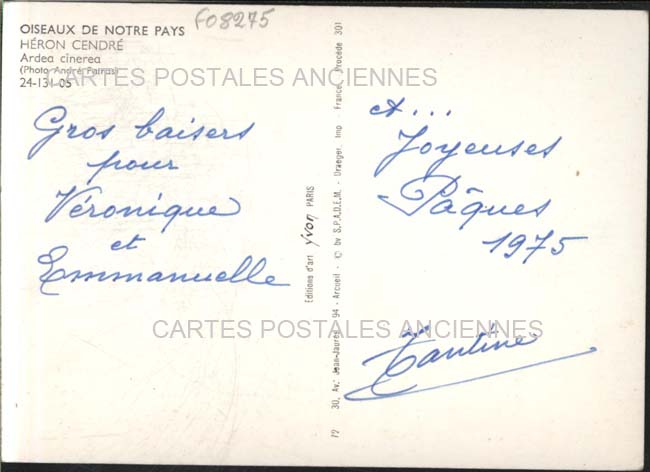 F08275
OISEAUX DE NOTRE PAYS
HÉRON CENDRÉ
Ardea cinerea
(Photo André Fatras)
24-131-05
CARTES POSTALES ANCIENNES
Gros baisers
pour
Véronique
et
Emmanuelle
Editions d'art yvon PARIS
30, Av. Jean-Jaurès - 94 - Arcueil - © by S.P.A.D.E.M. - Draeger, Imp. France, Procédé 301
et...
Joyeuses
Pâques
1975
Tantine
CARTES POSTALES ANCIENNES